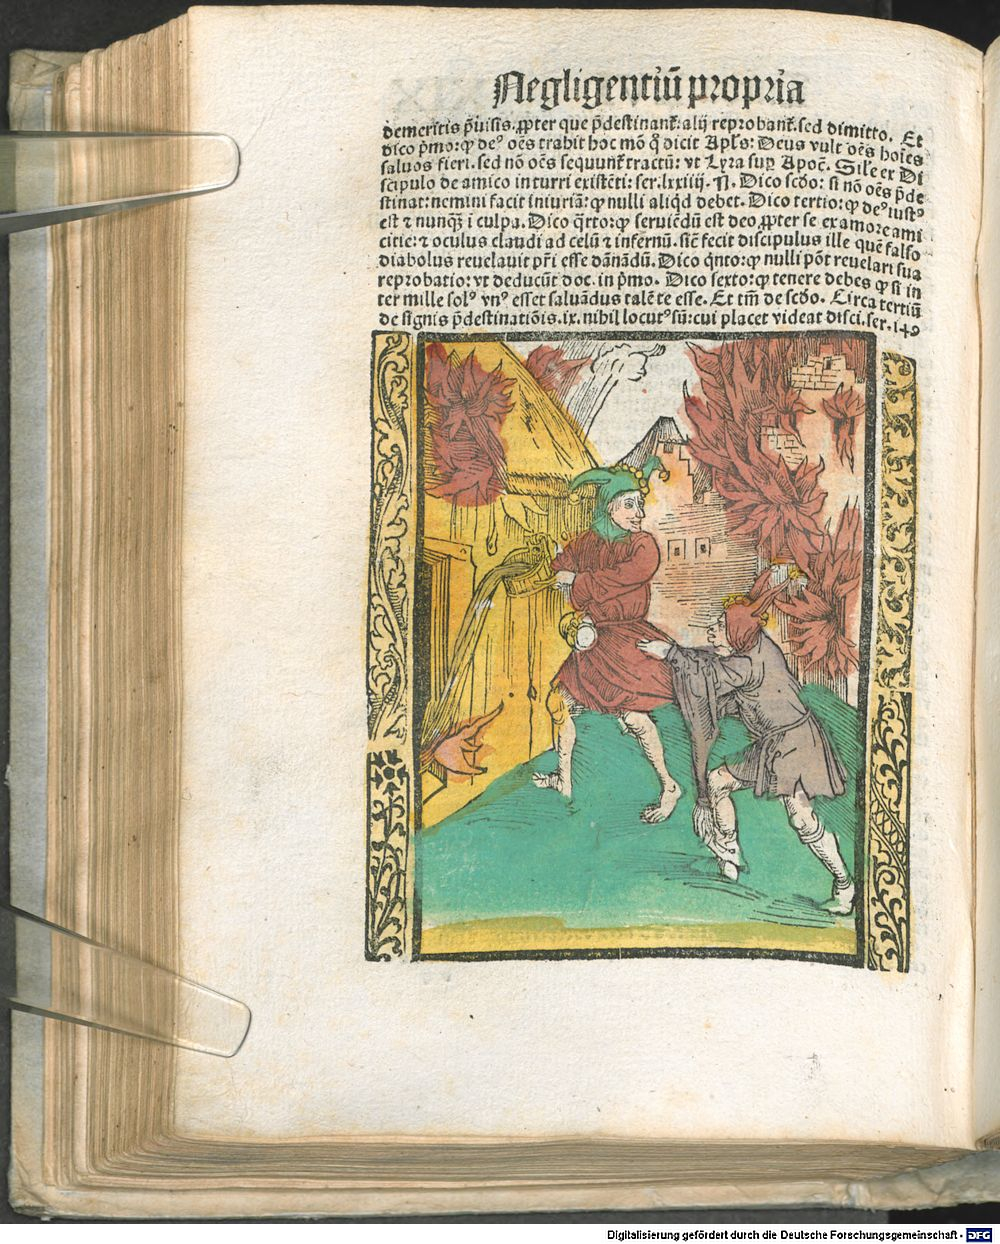 Negligentiū propria
demeritis p̄uisis. ꝓpter que p̄destinant᷑: alij reprobant᷑. sed dimitto. Et
dico pͥmo: ꝙ deꝰ oēs trahit hoc mō qͦ dicit Apl̄s: Deus vult oēs hoīes
saluos fieri. sed nō oēs sequunt᷑ tractū: vt Lyra suꝑ Apoc̄. Sil̄e ex Di
scipulo de amico in turri existēti: ser. lxxiiij. N. Dico scd̄o: si nō oēs p̄de
stinat: nemini facit iniuriā: ꝙ nulli aliqd debet. Dico tertio: ꝙ deꝰ iustꝰ
est ⁊ nunqꝫ i culpa. Dico qͣrto: ꝙ seruiēdū est deo ꝓpter se ex amore ami
citie: ⁊ oculus claudi ad celū ⁊ infernū. sic̄ fecit discipulus ille quē falso
diabolus reuelauit pr̄i esse dānādū. Dico qͥnto: ꝙ nulli pōt reuelari sua
reprobatio: vt deducūt doc. in pͥmo. Dico sexto: ꝙ tenere debes ꝙ si in
ter mille solꝰ vnꝰ esset saluādus talē te esse. Et tm̄ de scd̄o. Circa tertiū
de signis p̄destinatiōis. ix. nihil locutꝰ sū: cui placet videat disci. ser. 149
Digitalisierung gefördert durch die Deutsche Forschungsgemeinschaft - DFG